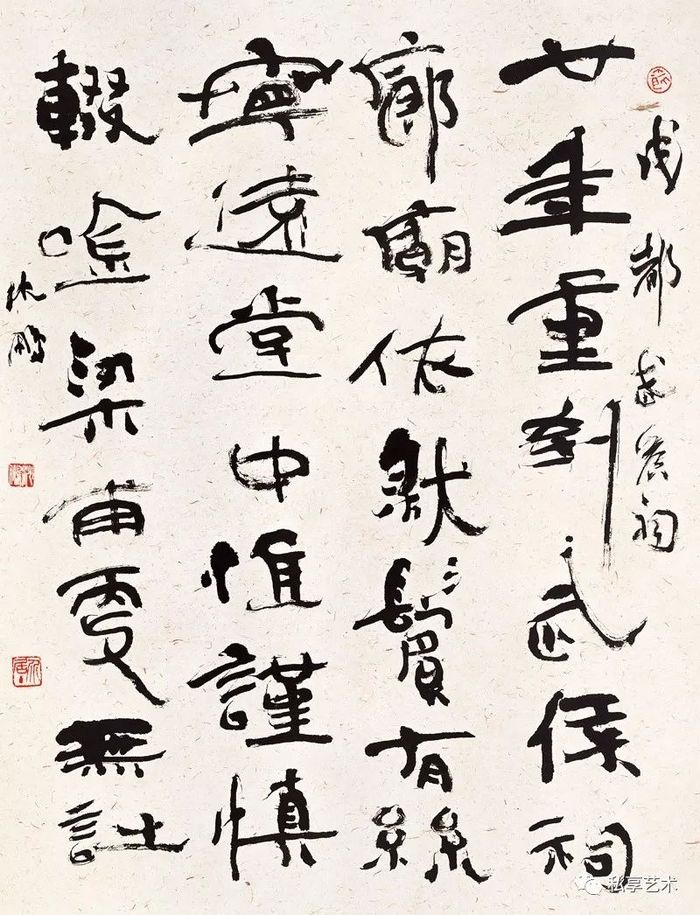 成都武侯祠
廿年重到武侯祠
廊廟依然鬢有絲
寧遠堂中惟謹慎
輟唫梁甫更無詩
沈鵬
私享艺术